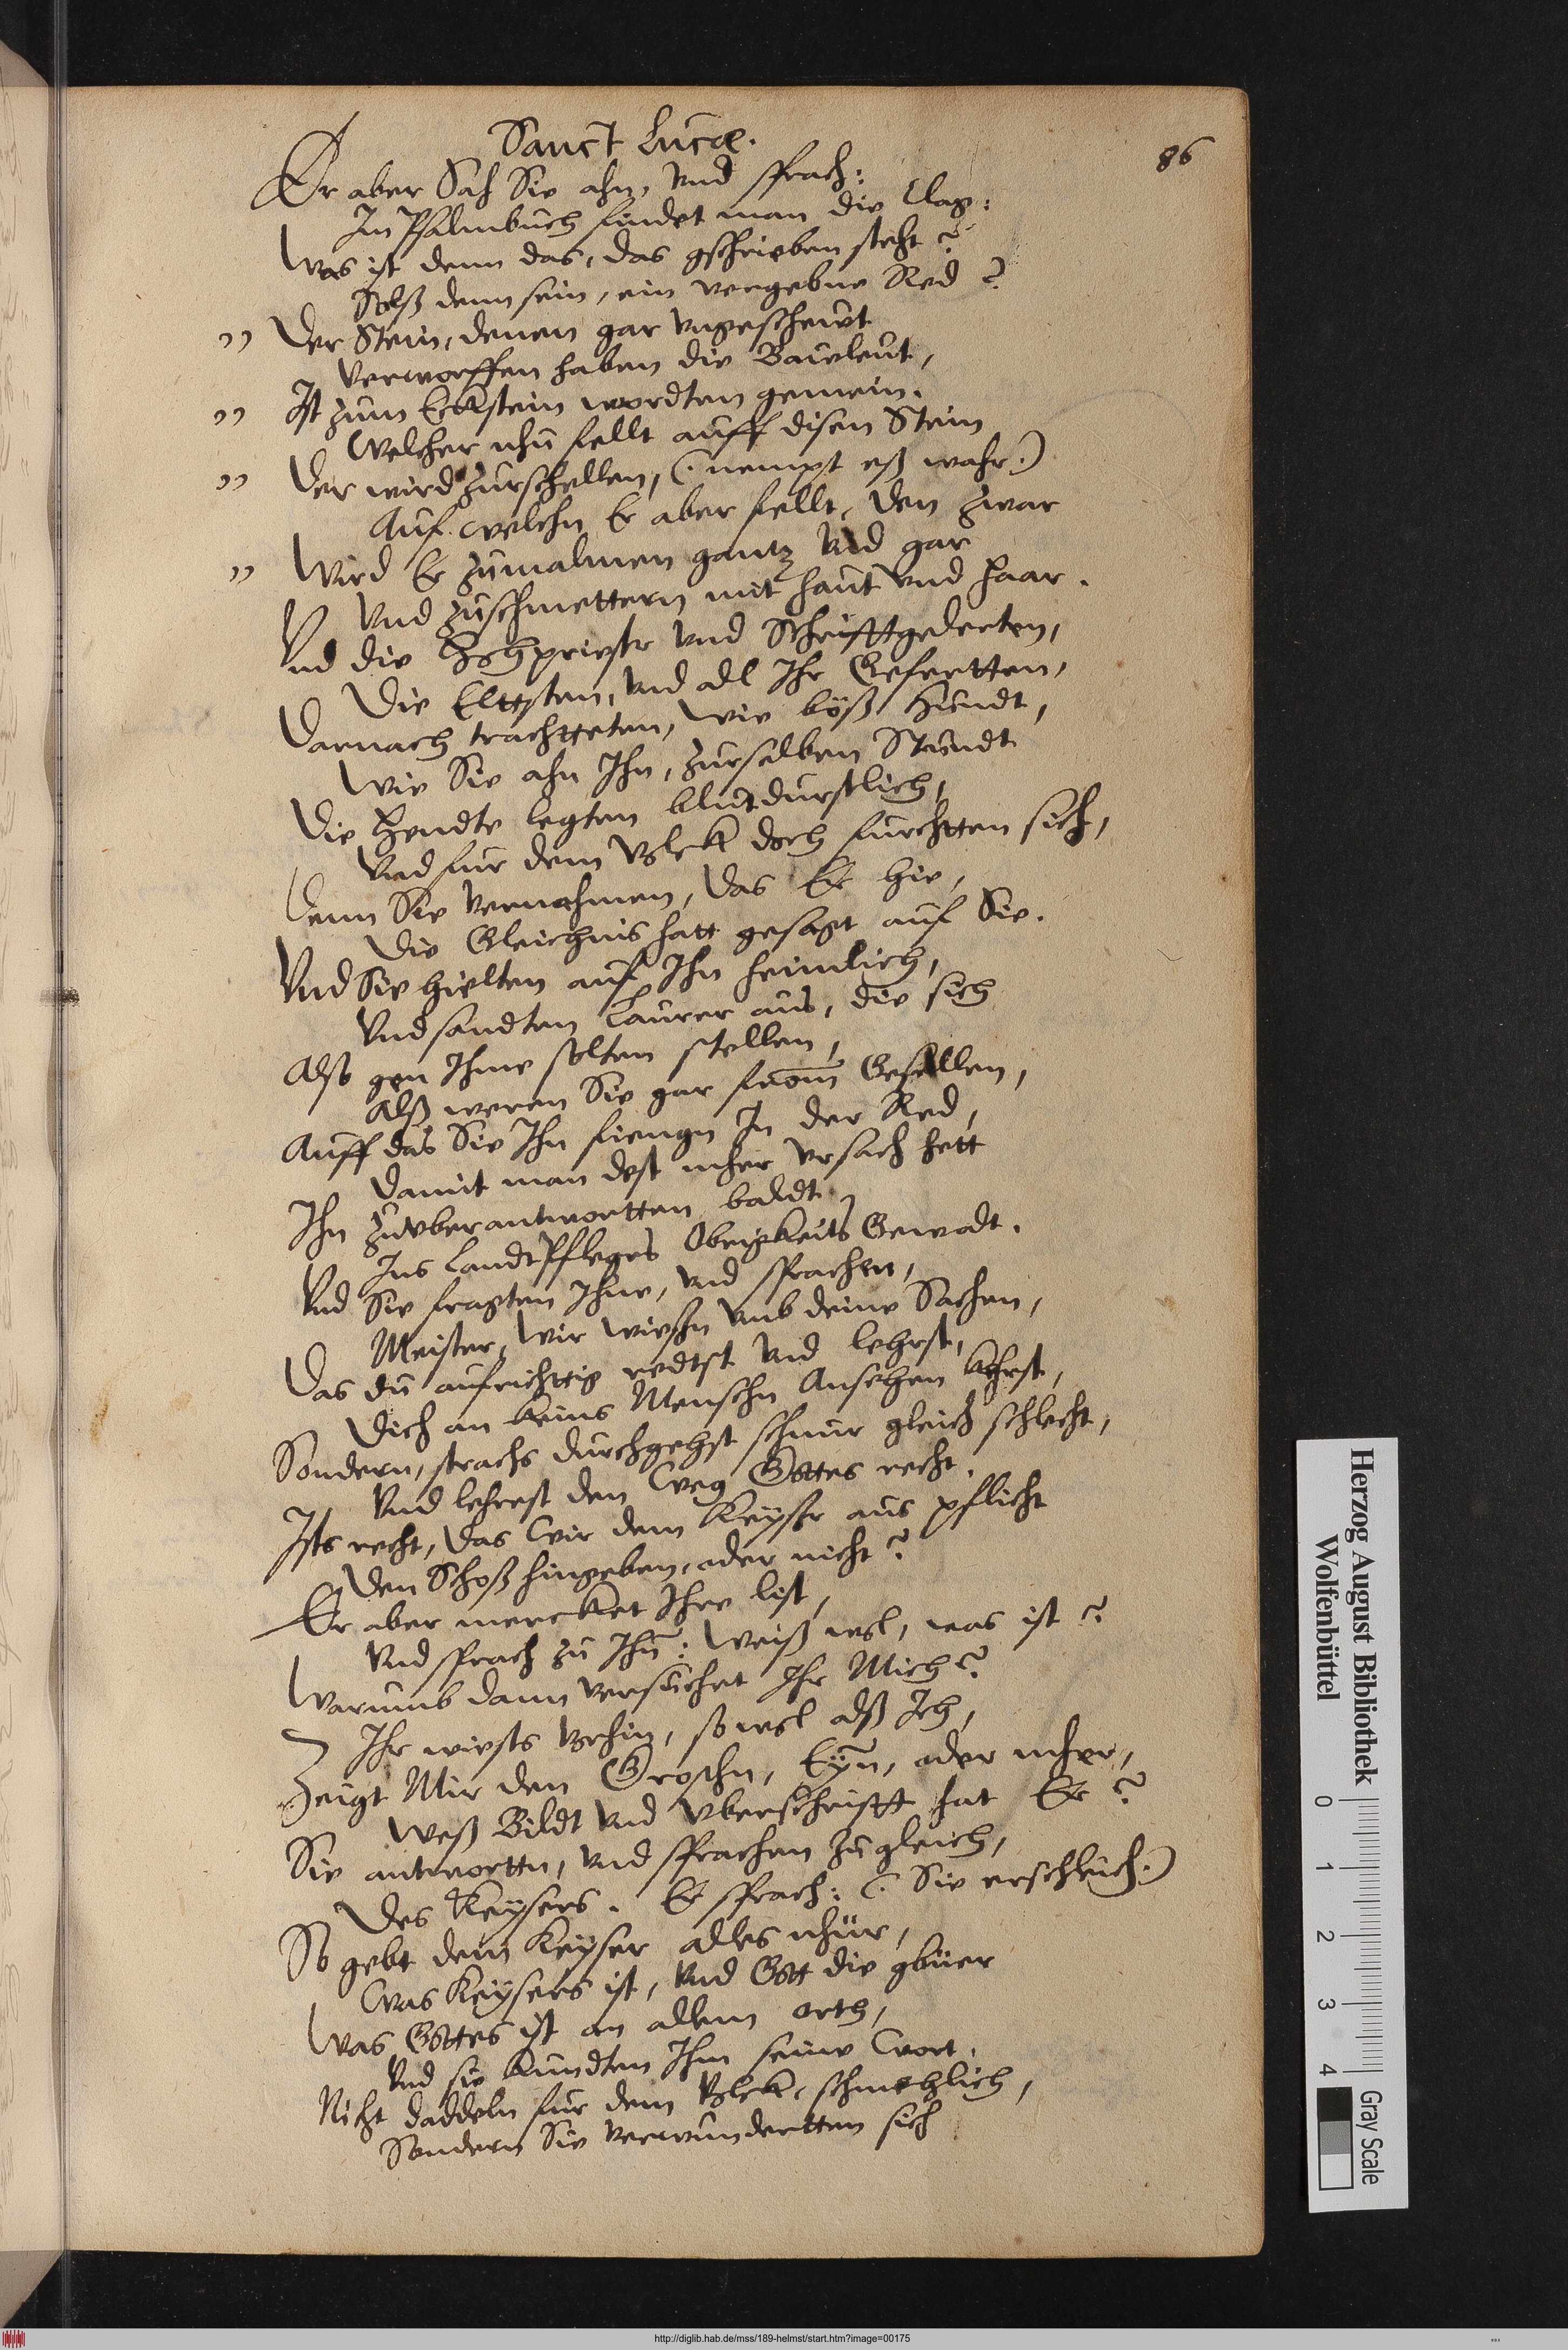 Sanct Lucæ.
86
Er aber Sah Sie ahn, vnd sprach:
In Psalmbuch findet man die Clag:
Was ist denn das, das gschrieben steht?
Solß denn sein, ein vergebne Red?
" Der Stein, denen gar vngeschewt
Verworffen haben die Bawleut,
" Ist zum Eckstein wordten gemein.
Welcher nhu fellt auff disen Stein
" Der wird zurschellen, (: nempt eß wahr:)
Auf welchn Er aber fellt, den zwar
" Wird Er zumalmen gantz vnd gar
Vnd zuschmettern mit haut vnd haar.
Vnd die Hohpriestr vnd Schrifftgelerten,
Die Elttsten, vnd all Ihr Gefertten,
Darnach trachtteten, wie böß Hundt,
Wie Sie ahn Ihn, zurselben Stundt
Die Hendte legten blutdurstlich,
Vnd fur dem Volck doch furchtten sich,
Denn Sie vernahmen, das Er hie,
Die Gleichnis hatt gesagt auf Sie.
Vnd Sie hielten auf Ihn heimlich,
Vnd sandten Laurer aus, die sich
Also gen Ihme solten stellen,
Alß weren Sie gar from Gesellen,
Auff das Sie Ihn fiengn In der Red,
Damit man dest mher vrsach hett
Ihn zuvberantwortten baldt,
Ins LandtPflegrs Obrigkeits Gewalt.
Vnd Sie fragten Ihne, vnd sprachen,
Meister, Wir wissn vmb deine Sachen,
Das du aufrichttig redtst vnd lehrst,
Dich an keins Menschn Ansehen kehrst,
Sondern, strachs durchgehst schnur gleich schlecht,
Vnd lehrest den Weg Gottes recht.
Ists recht, das Wir dem Keysr aus pflicht
Den Schoß hingeben, oder nicht?
Er aber mercket Ihre list,
Vnd sprach zu Ihn: Weiß wol, was ist?
Warumb dann versuchet Ihr Mich?
Ihr wists vorhin, so wol alß Ich,
Zeigt Mir den Groschn, Eyn, oder mher,
Weß Bildt vnd vberschrifft hat Er?
Sie antwortten, vnd sprachen zugleich,
Des Keysers. Er sprach: (: Sie erschleich:)
So gebt dem Keyser alles nhur,
Was Keysers ist, Vnd Gott die gbüer
Was Gottes ist an allem orth,
Vnd sie kundten Ihm seine Wort,
Nicht daddeln fur dem Volck, schmehlich,
Sondern Sie verwundertten sich
Herzog August Bibliothek
Wolfenbüttel
0 1 2 3 4
Gray Scale
http://diglib.hab.de/mss/189-helmst/start.htm?image=00175